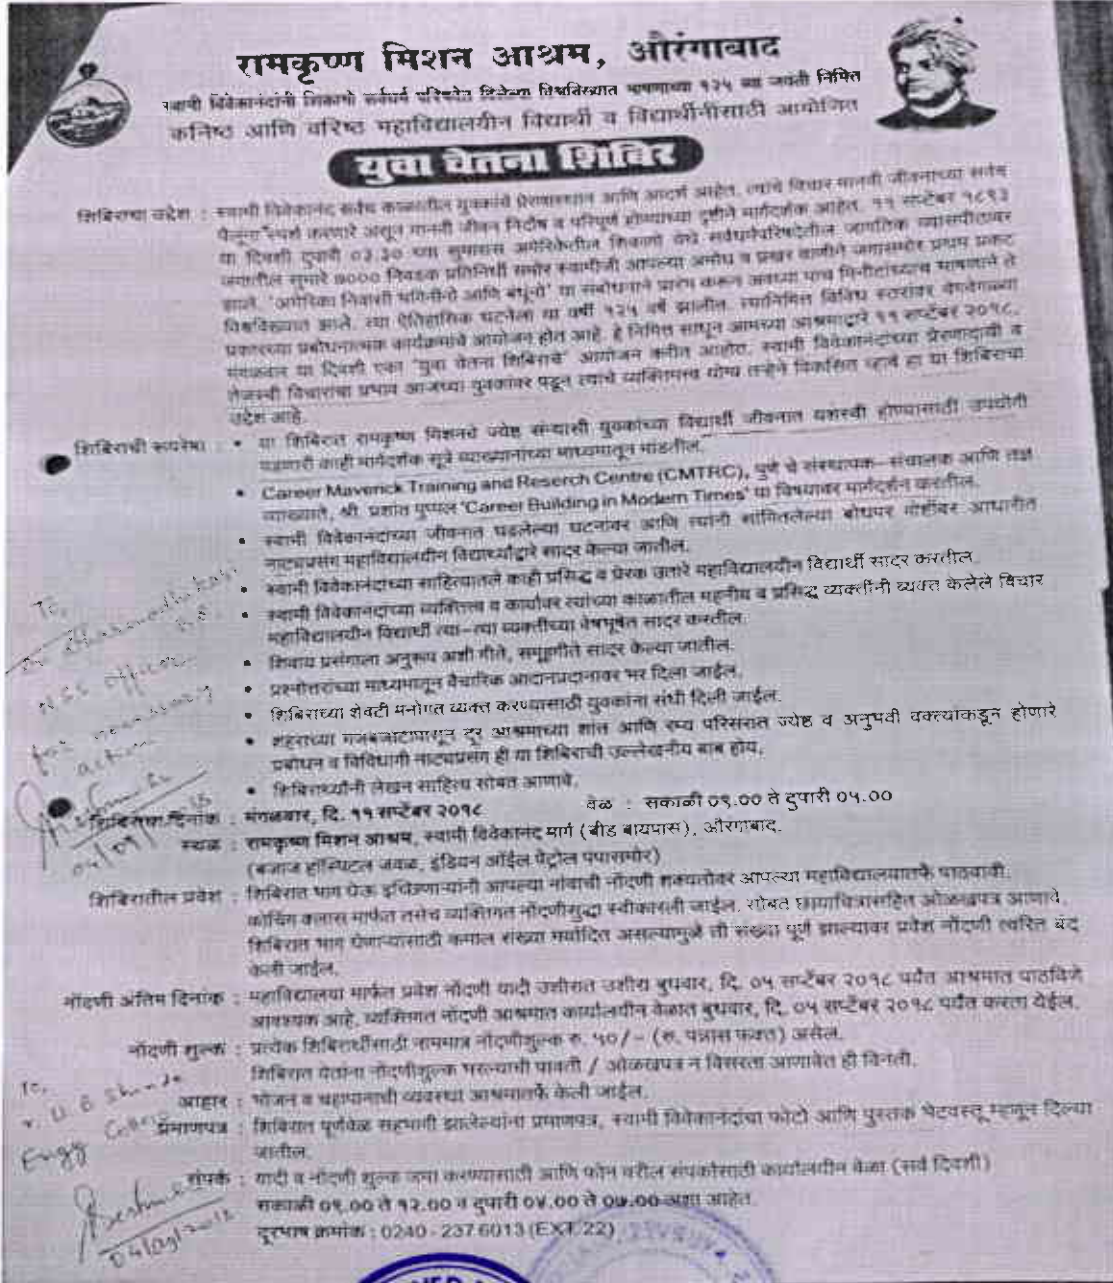 रामकृष्ण मिशन आश्रम, औरंगाबाद
स्वामी विवेकानंदांनी शिकागो सर्वधर्म परिषदेत दिलेल्या विश्वविख्यात भाषणाच्या १२५ व्या जयंती निमित्त
कनिष्ठ आणि वरिष्ठ महाविद्यालयीन विद्यार्थी व विद्यार्थीनीसाठी आयोजित
युवा चेतना शिबिर
शिबिराचा उद्देश : स्वामी विवेकानंद सर्वच काळातील युवकांचे प्रेरणास्थान आणि आदर्श आहेत. त्यांचे विचार मानवी जीवनाच्या सर्वच
पैलूंना स्पर्श करणारे असून मानवी जीवन निर्दोष व परिपूर्ण होण्याच्या दृष्टीने मार्गदर्शक आहेत. ११ सप्टेंबर १८९३
या दिवशी दुपारी ०३.३० च्या सुमारास अमेरिकेतील शिकागो येथे सर्वधर्मपरिषदेतील जागतिक व्यासपीठावर
जगातील सुमारे ७००० निवडक प्रतिनिधी समोर स्वामीजी आपल्या अमोघ व प्रखर वाणीने जगासमोर प्रथम प्रकट
झाले. 'अमेरिका निवासी भगिनींनो आणि बंधूंनो' या संबोधनाने प्रारंभ करून अवघ्या पाच मिनीटांच्याच भाषणाने ते
विश्वविख्यात झाले. त्या ऐतिहासिक घटनेला या वर्षी १२५ वर्षे झालीत. त्यानिमित्त विविध स्तरांवर वेगवेगळ्या
प्रकारच्या प्रबोधनात्मक कार्यक्रमांचे आयोजन होत आहे. हे निमित्त साधून आमच्या आश्रमाद्वारे ११ सप्टेंबर २०१८,
मंगळवार या दिवशी एका 'युवा चेतना शिबिराचे' आयोजन करीत आहोत. स्वामी विवेकानंदांच्या प्रेरणादायी व
तेजस्वी विचारांचा प्रभाव आजच्या युवकांवर पडून त्यांचे व्यक्तिमत्त्व योग्य तऱ्हेने विकसित व्हावे हा या शिबिराचा
उद्देश आहे.
शिबिराची रूपरेषा : • या शिबिरात रामकृष्ण मिशनचे ज्येष्ठ संन्यासी युवकांच्या विद्यार्थी जीवनात यशस्वी होण्यासाठी उपयोगी
पडणारी काही मार्गदर्शक सूत्रे व्याख्यानांच्या माध्यमातून मांडतील.
• Career Maverick Training and Reserch Centre (CMTRC), पुणे चे संस्थापक-संचालक आणि तज्ञ
व्याख्याते, श्री. प्रशांत पुप्पल 'Career Building in Modern Times' या विषयावर मार्गदर्शन करतील.
• स्वामी विवेकानंदांच्या जीवनात घडलेल्या घटनांवर आणि त्यांनी सांगितलेल्या बोधपर गोष्टींवर आधारीत
नाट्यप्रसंग महाविद्यालयीन विद्यार्थ्यांद्वारे सादर केल्या जातील.
• स्वामी विवेकानंदांच्या साहित्यातले काही प्रसिद्ध व प्रेरक उतारे महाविद्यालयीन विद्यार्थी सादर करतील.
• स्वामी विवेकानंदांच्या व्यक्तित्त्व व कार्यावर त्यांच्या काळातील महनीय व प्रसिद्ध व्यक्तींनी व्यक्त केलेले विचार
महाविद्यालयीन विद्यार्थी त्या-त्या व्यक्तीच्या वेषभूषेत सादर करतील.
• शिवाय प्रसंगाला अनुरूप अशी गीते, समूहगीते सादर केल्या जातील.
• प्रश्नोत्तरांच्या माध्यमातून वैचारिक आदानप्रदानावर भर दिला जाईल.
• शिबिराच्या शेवटी मनोगत व्यक्त करण्यासाठी युवकांना संधी दिली जाईल.
• शहराच्या गजबजाटापासून दूर आश्रमाच्या शांत आणि रम्य परिसरात ज्येष्ठ व अनुभवी वक्त्यांकडून होणारे
प्रबोधन व विविधांगी नाट्यप्रसंग ही या शिबिराची उल्लेखनीय बाब होय.
• शिबिरार्थ्यांनी लेखन साहित्य सोबत आणावे.
शिबिराचा दिनांक : मंगळवार, दि. ११ सप्टेंबर २०१८ वेळ : सकाळी ०९.०० ते दुपारी ०५.००
स्थळ : रामकृष्ण मिशन आश्रम, स्वामी विवेकानंद मार्ग (बीड बायपास), औरंगाबाद.
(बजाज हॉस्पिटल जवळ, इंडियन ऑईल पेट्रोल पंपासमोर)
शिबिरातील प्रवेश : शिबिरात भाग घेऊ इच्छिणाऱ्यांनी आपल्या नांवाची नोंदणी शक्यतोवर आपल्या महाविद्यालयातर्फे पाठवावी.
कोचिंग क्लास मार्फत तसेच व्यक्तिगत नोंदणीसुद्धा स्वीकारली जाईल. सोबत छायाचित्रासहित ओळखपत्र आणावे.
शिबिरात भाग घेणाऱ्यासाठी कमाल संख्या मर्यादित असल्यामुळे ती संख्या पूर्ण झाल्यावर प्रवेश नोंदणी त्वरित बंद
केली जाईल.
नोंदणी अंतिम दिनांक : महाविद्यालया मार्फत प्रवेश नोंदणी यादी उशीरात उशीरा बुधवार, दि. ०५ सप्टेंबर २०१८ पर्यंत आश्रमात पाठविणे
आवश्यक आहे. व्यक्तिगत नोंदणी आश्रमात कार्यालयीन वेळात बुधवार, दि. ०५ सप्टेंबर २०१८ पर्यंत करता येईल.
नोंदणी शुल्क : प्रत्येक शिबिरार्थीसाठी नाममात्र नोंदणीशुल्क रु. ५०/- (रु. पन्नास फक्त) असेल.
शिबिरात येतांना नोंदणीशुल्क भरल्याची पावती / ओळखपत्र न विसरता आणावेत ही विनंती.
आहार : भोजन व चहापानाची व्यवस्था आश्रमातर्फे केली जाईल.
प्रमाणपत्र : शिबिरात पूर्णवेळ सहभागी झालेल्यांना प्रमाणपत्र, स्वामी विवेकानंदांचा फोटो आणि पुस्तक भेटवस्तू म्हणून दिल्या
जातील.
संपर्क : यादी व नोंदणी शुल्क जमा करण्यासाठी आणि फोन वरील संपर्कासाठी कार्यालयीन वेळा (सर्व दिवशी)
सकाळी ०९.०० ते १२.०० व दुपारी ०४.०० ते ०७.०० अशा आहेत.
दूरभाष क्रमांक : 0240 - 237 6013 (EXT. 22)
To,
NSS officer
for necessary
action
04/09/
To,
U B Shinde
Engg
04/09/2018